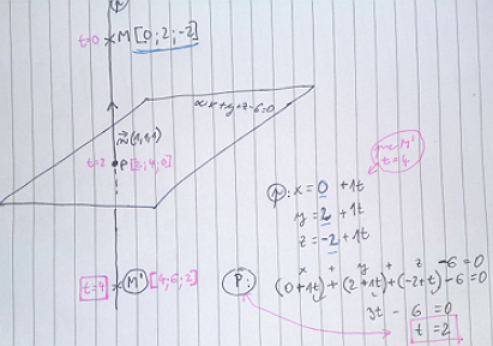 p
t=0 M [0; 2; -2]
α x+y+z-6=0
n⃗(1,1,1)
t=2 P [2; 4; 0]
t=4 M' [4; 6; 2]
pro M'
t=4
p: x = 0 + 1t
y = 2 + 1t
z = -2 + 1t
x + y + z - 6 = 0
P: (0+1t) + (2+1t) + (-2+t) - 6 = 0
3t - 6 = 0
t = 2